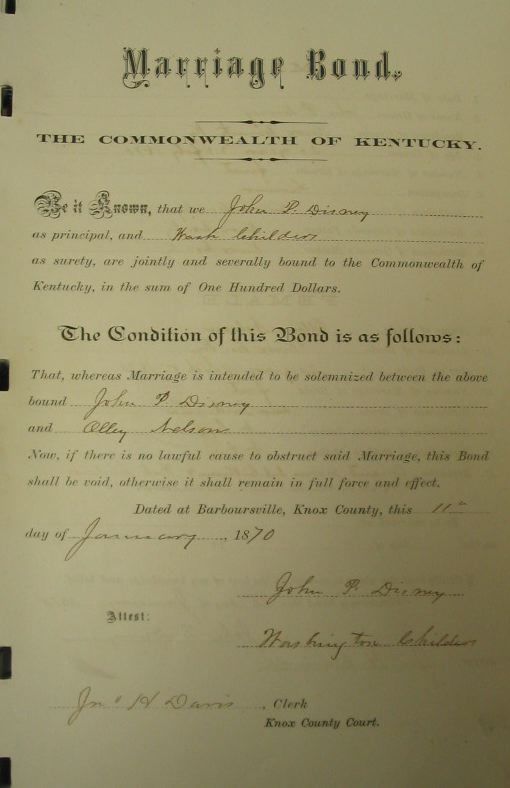 Marriage Bond.
THE COMMONWEALTH OF KENTUCKY.
Be it Known, that we John P. Disney
as principal, and Wash Childers
as surety, are jointly and severally bound to the Commonwealth of
Kentucky, in the sum of One Hundred Dollars.
The Condition of this Bond is as follows:
That, whereas Marriage is intended to be solemnized between the above
bound John P Disney
and Olley Nelson
Now, if there is no lawful cause to obstruct said Marriage, this Bond
shall be void, otherwise it shall remain in full force and effect.
Dated at Barboursville, Knox County, this 11th
day of January, 1870
John P. Disney
Attest:
Washington Childers
Jno H Davis, Clerk
Knox County Court.